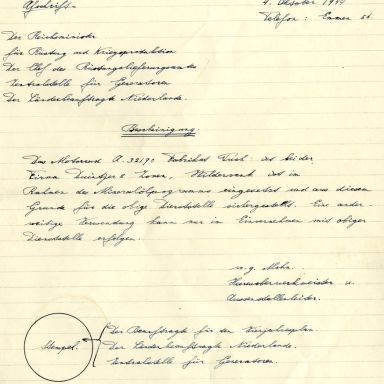 Abschrift.
4. Oktober 1944
Telefon: Emmen 51.
Der Reichsminister
für Rüstung und Kriegsproduktion
Der Chef des Rüstungslieferungsamtes
Zentralstelle für Generatoren
Der Länderbeauftragte Niederlande.
Bescheinigung.
Das Motorrad A. 33190 Fabrikat ist bei der
Firma & Zonen, Wildervank ist im
Rahmen des Mineralölprogramms eingesetzt und aus diesem
Grunde für die obige Dienststelle sichergestellt. Eine ander-
weitige Verwendung kann nur im Einvernehmen mit obiger
Dienststelle erfolgen.
w.g. Mohr.
u.
Aussenstellenleiter.
Stempel.
Der Beauftragte für den Vierjahresplan.
Der Länderbeauftragte Niederlande.
Zentralstelle für Generatoren.